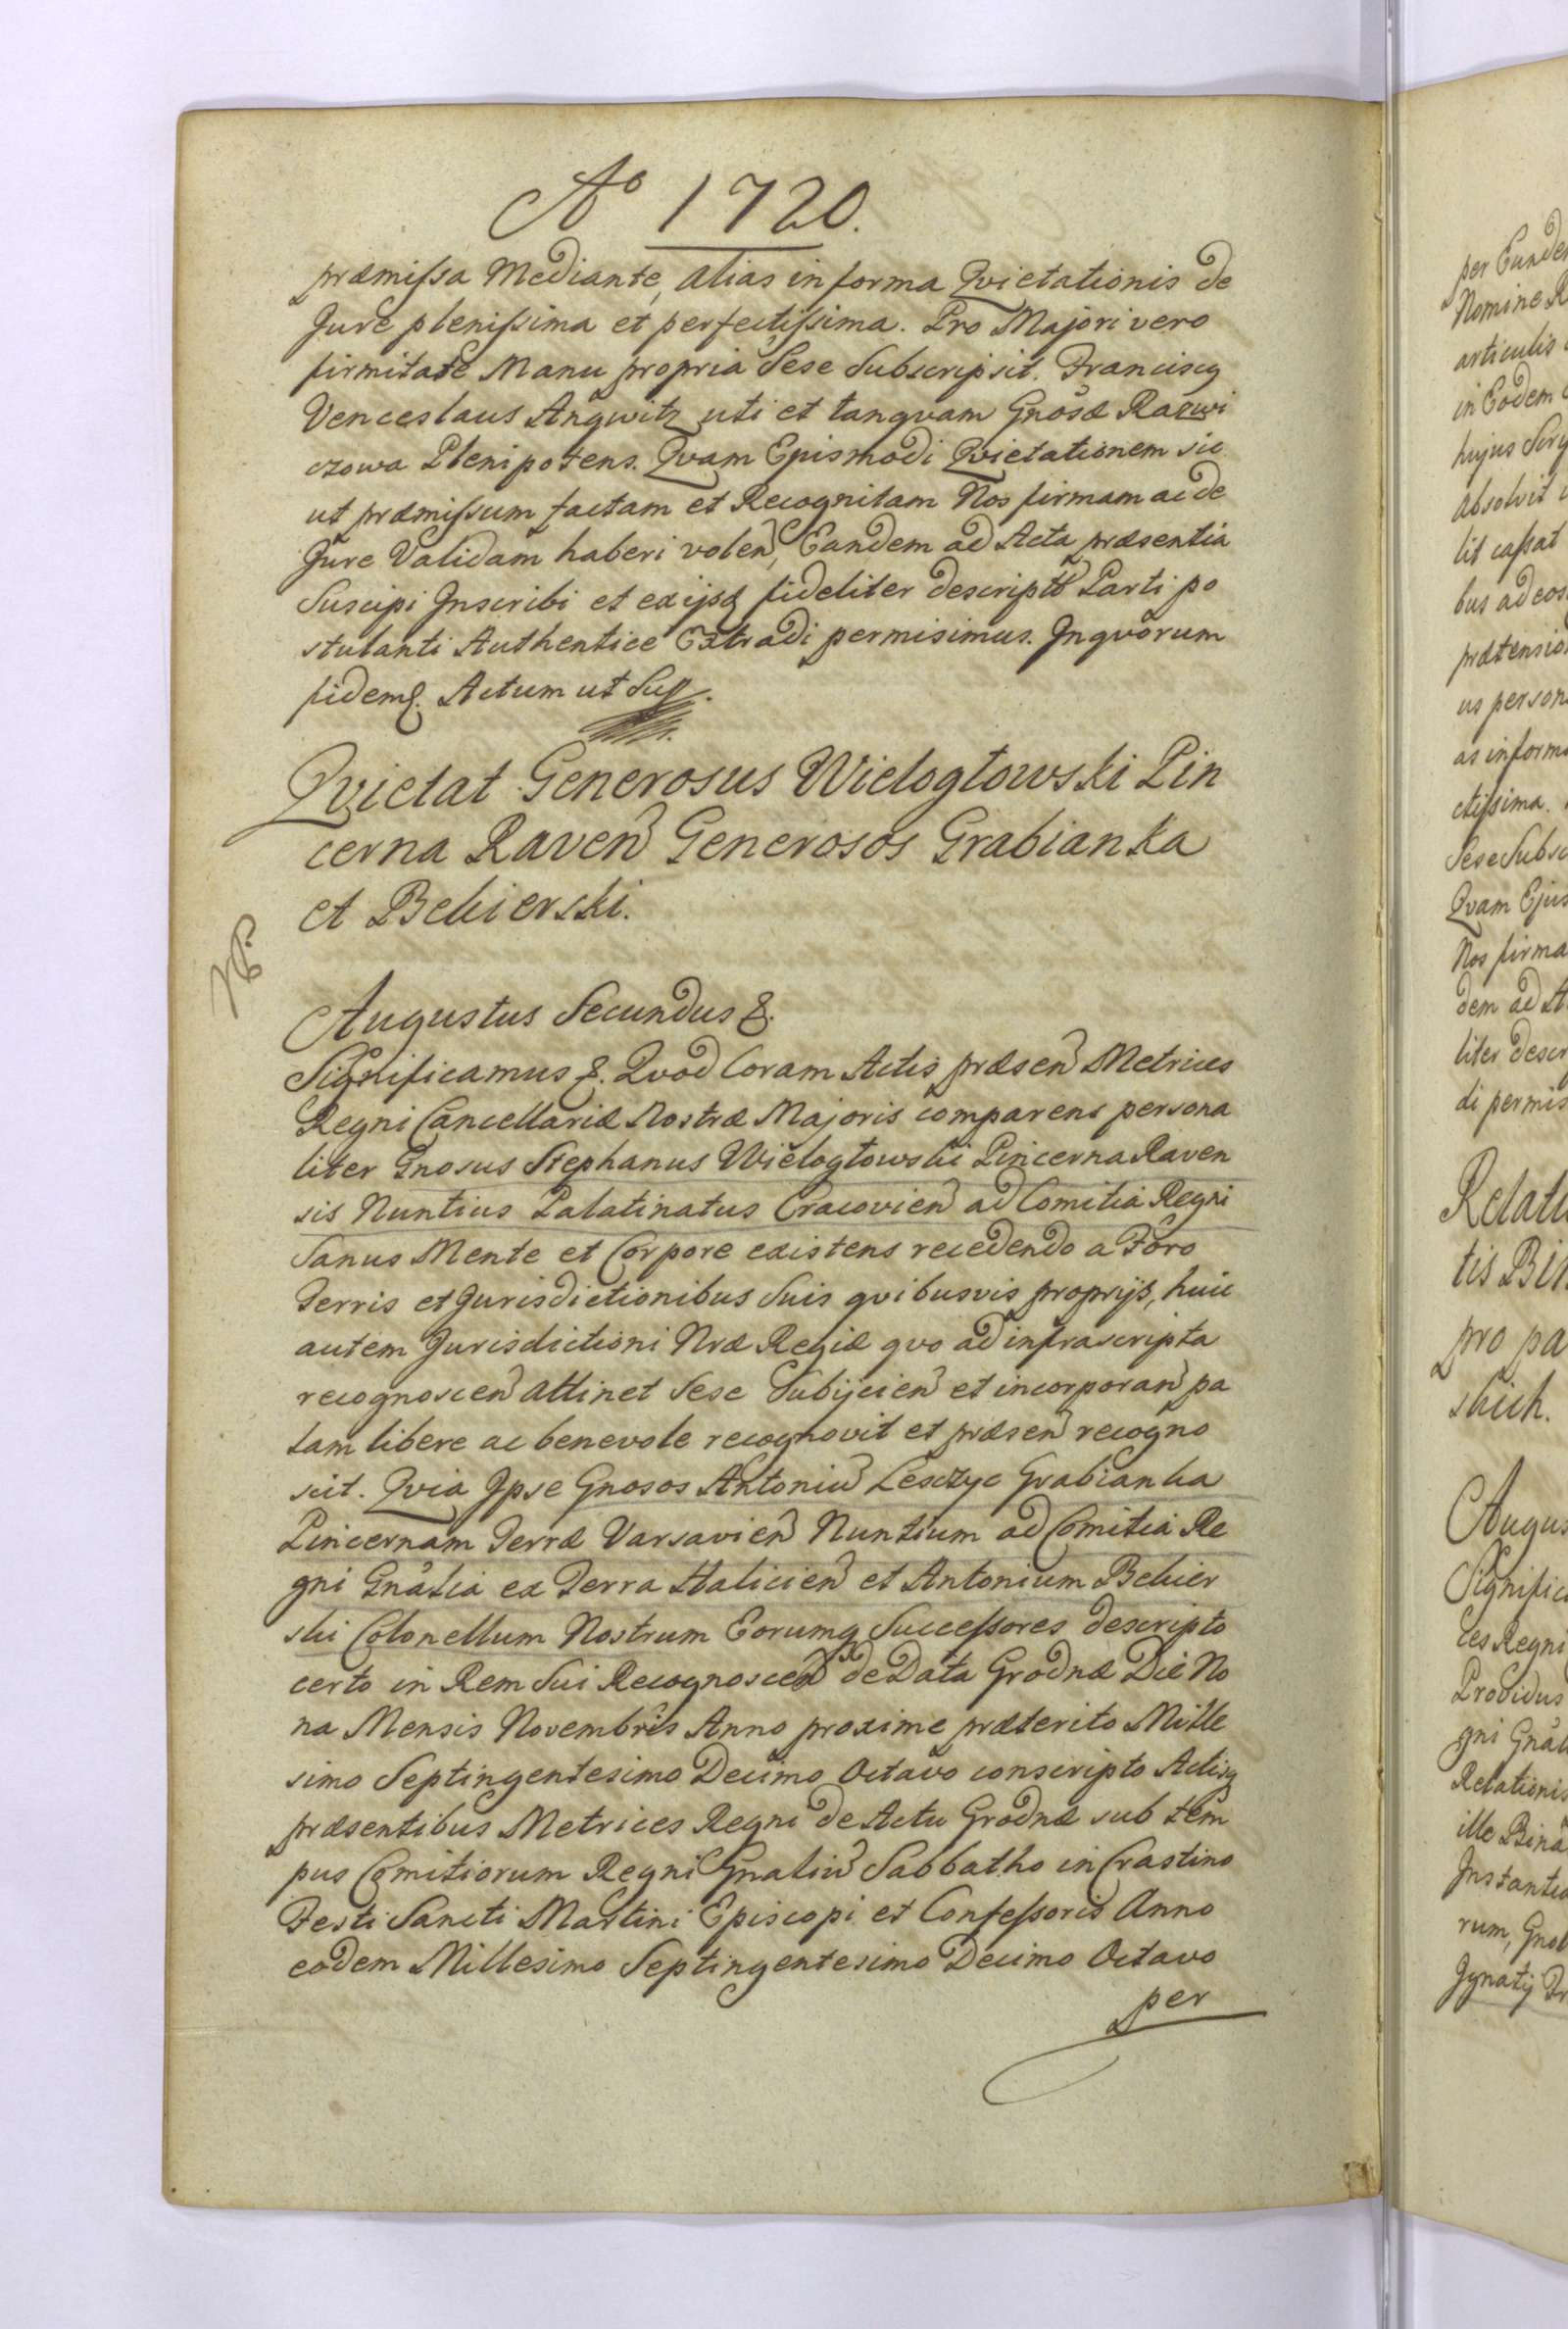 Aº 1720.
præmissa Mediante, alias in forma Qvietationis de
Jure plenissima et perfectissima. Pro Majori vero
firmitate Manu propria Sese Subscripsit. Franciscq
Venceslaus Angwitz uti et tanqvam Gnosæ Razwi
czowa Plenipotens. Qvam Ejusmodi Qvietationem sic
ut præmissum factam et Recognitam Nos firmam ac de
Jure Validam haberi volen, Eandem ad Acta præsentia
Suscipi Inscribi et ex ijsq fideliter descriptã Parti po
stulanti Authentice Extradi permisimus. In qvorum
fidem &. Actum ut Sup.
Qvietat Generosus Wielogłowski Pin
cerna Raven Generosos Grabianka
et Bekierski.
NB
Augustus Secundus &.
Significamus &. Qvod Coram Actis præsen Metrices
Regni Cancellariæ Nostræ Majoris comparens persona
liter Gnosus Stephanus Wielogłowski Pincerna Raven
sis Nuntius Palatinatus Cracovien ad Comitia Regni
Sanus Mente et Corpore existens recedendo a Foro
Terris et Jurisdictionibus Suis qvibusvis proprijs, huic
autem Jurisdictioni Nræ Regiæ qvo ad infrascripta
recognoscen attinet Sese Subijcien et incorporan pa
lam libere ac benevole recognovit et præsen recogno
scit. Qvia Ipse Gnosos Antoniũ Lesczyc Grabianka
Pincernam Terræ Varsavien Nuntium ad Comitia Re
gni Gnalia ex Terra Halicien et Antonium Bekier
ski Colonellum Nostrum Eorumq Successores descripto
certo in Rem Sui Recognoscen de Data Grodnæ Die No
na Mensis Novembris Anno proxime præterito Mille
simo Septingentesimo Decimo Octavo conscripto Actisq
præsentibus Metrices Regni de Actu Grodnæ sub tem
pus Comitiorum Regni Gnaliũ Sabbatho in Crastino
Festi Sancti Martini Episcopi et Confessoris Anno
eodem Millesimo Septingentesimo Decimo Octavo
per
per Eunde
Nomine R
articulis
in Eodem
hujus
absolvit
lit cassat
bus ad eos
prætensio
us person
as inform
ctissima.
Sese Subsc
Qvam Ejus
Nos firma
dem ad A
liter descr
di permis
Relati
tis Bi
pro pa
skich.
Augus
Signific
ces Regni
Providus
gni Gnal
Relationis
ille Bina
Instantia
rum, Gnol
Ignatij